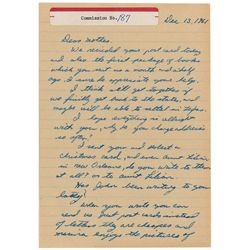 Commission No. 187
Dec 13, 1961
Dear mother,
We received your post card today
and also the first package of books
which you sent us a month and a half
ago. I sure do appreciate your help.
I think we'll get together if
we finally get back to the states, and
maybe will be able to settle in
I hope everything is allright
with you. Why do you change address
so often?
I sent you and Robert a
Christmas card, and even aunt Lillian
in New Orleans, do you write to them
at all? or to aunt Lillian.
Has John been writing to you
lately?
When you write you can
send us just post cards instead of
letters they are cheaper and
Marina enjoys the pictures of